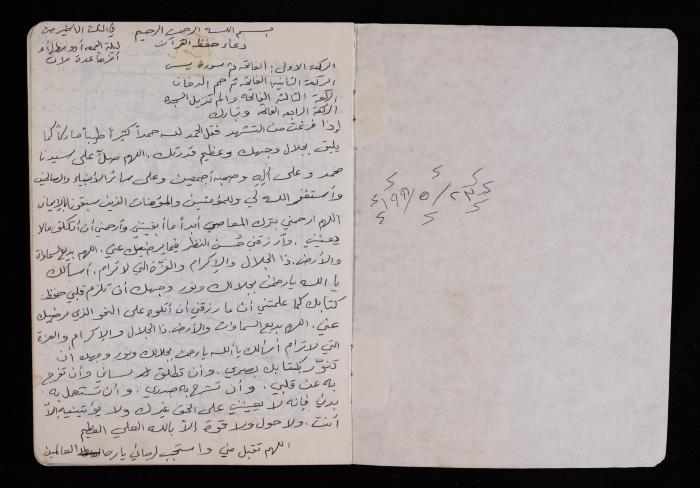 بسم الله الرحمن الرحيم
دعاء حفظ القرآن
في الثلث الأخير من
ليلة الجمعة أو
أقرها عدة مرات
الركعة الاولى: الفاتحة ثم سورة يس
الركعة الثانية: الفاتحة ثم حم الدخان
الركعة الثالثة الفاتحة والم تنزيل السجدة
الركعة الرابعة الفاتحة وتبارك
إذا فرغت من التشهد فقل الحمد لله حمداً كثيراً طيباً مباركاً كما
يليق بجلال وجهك وعظيم قدرتك. اللهم صلّ على سيدنا
محمد وعلى آله وصحبه أجمعين وعلى سائر الأنبياء والصالحين
وأستغفر الله لي وللمؤمنين والمؤمنات الذين سبقونا بالإيمان
اللهم ارحمني بترك المعاصي أبداً ما أبقيتني، وارحمني أن أتكلف مالا
يعنيني، وارزقني حُسن النظر فيما يرضيك عني. اللهم بديع السماوات
والأرض. ذا الجلال والإكرام والعزّة التي لا ترام. أسألك
يا الله يا رحمن بجلالك ونور وجهك أن تلزم قلبي حفظ
كتابك كما علمتني وارزقني أن أتلوه على النحو الذي يرضيك
عني. اللهم بديع السماوات والأرض. ذا الجلال والإكرام والعزة
التي لا ترام أسألك يا الله يا رحمن بجلالك ونور وجهك ان
تنوّر بكتابك بصري. وأن تطلق به لساني وأن تفرج
به عن قلبي. وأن تشرح به صدري. وأن تستعمل به
بدني فإنه لا يعينني على الحق غيرك ولا يؤتينيه إلاّ
أنت. ولا حول ولا قوة إلاّ بالله العلي العظيم
اللهم تقبل مني واستجب لرجائي يا رب العالمين
١٩٩١/٥/٢٣